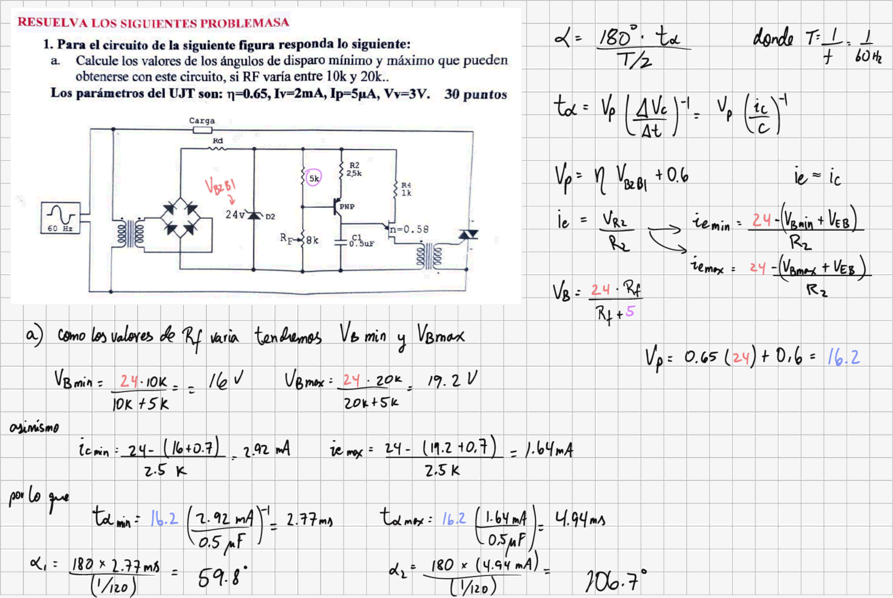 RESUELVA LOS SIGUIENTES PROBLEMASA
1. Para el circuito de la siguiente figura responda lo siguiente:
a. Calcule los valores de los ángulos de disparo mínimo y máximo que pueden
obtenerse con este circuito, si RF varía entre 10k y 20k..
Los parámetros del UJT son: η=0.65, Iv=2mA, Ip=5µA, Vv=3V. 30 puntos
Carga
Rd
R2
25k
5k
R4
1k
VB2B1
PNP
24v
D2
n=0.58
60 Hz
RF
8k
C1
0.5uF
α = 180° · tα / (T/2) donde T = 1/f = 1/60Hz
tα = Vp (ΔVc/Δt)⁻¹ = Vp (ic/c)⁻¹
Vp = η VB2B1 + 0.6 ie ≈ ic
ie = VR2/R2 → ie min = 24-(VBmin + VEB)/R2
ie max = 24-(VBmax + VEB)/R2
VB = 24 · Rf / (Rf + 5)
Vp = 0.65 (24) + 0.6 = 16.2
a) como los valores de Rf varia tendremos VB min y VBmax
VB min = 24·10K / (10K + 5K) = = 16 V VB max = 24 · 20K / (20K + 5K) = 19.2 V
asimismo
ic min = 24 - (16+0.7) / 2.5 K = 2.92 mA ie max = 24 - (19.2 + 0.7) / 2.5 K = 1.64mA
por lo que
tα min = 16.2 (2.92 mA / 0.5 µF)⁻¹ = 2.77ms tα max = 16.2 (1.64 mA / 0.5µF)⁻¹ = 4.94ms
α1 = 180 × 2.77ms / (1/120) = 59.8° α2 = 180 × (4.94 mA) / (1/120) = 106.7°